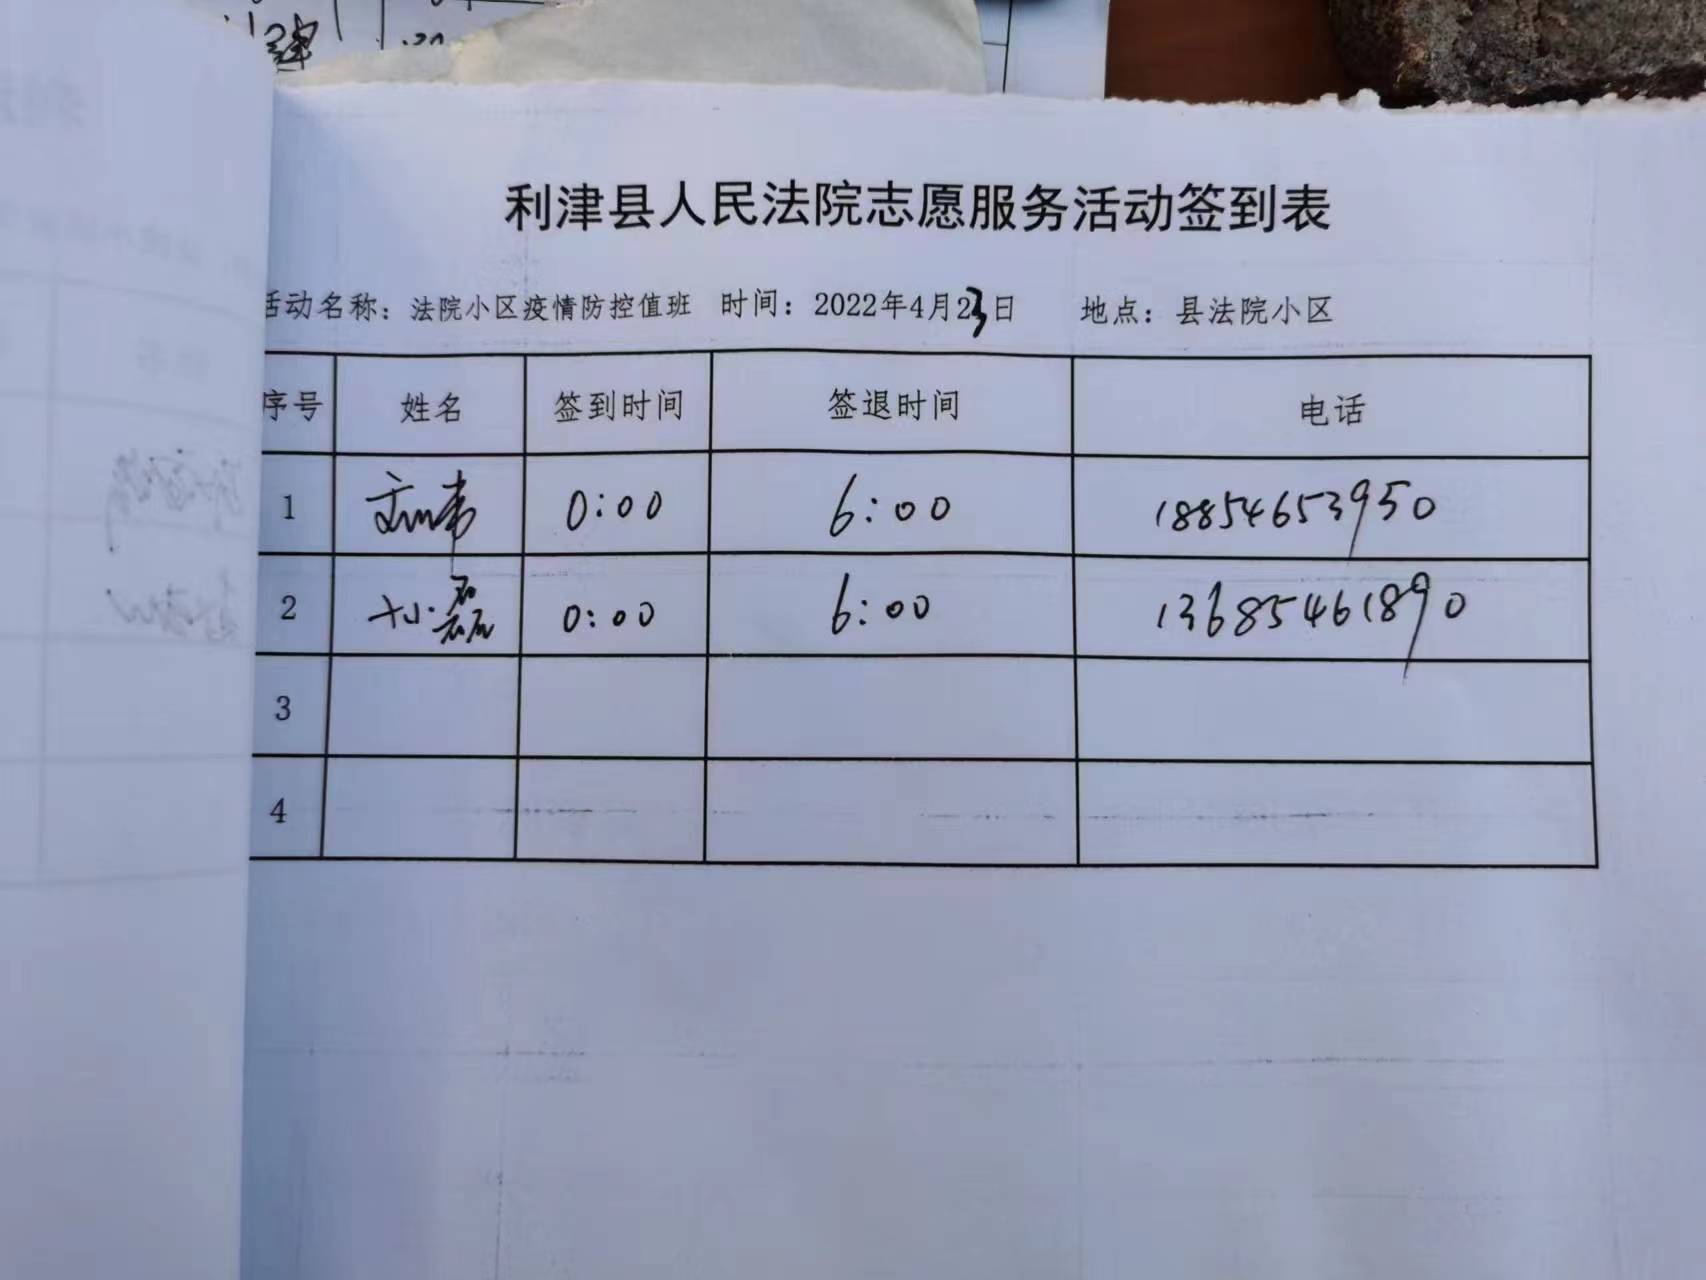 利津县人民法院志愿服务活动签到表
活动名称：法院小区疫情防控值班 时间：2022年4月23日 地点：县法院小区
序号 姓名 签到时间 签退时间 电话
1 0:00 6:00 18854653950
2 0:00 6:00 13685461890
3
4